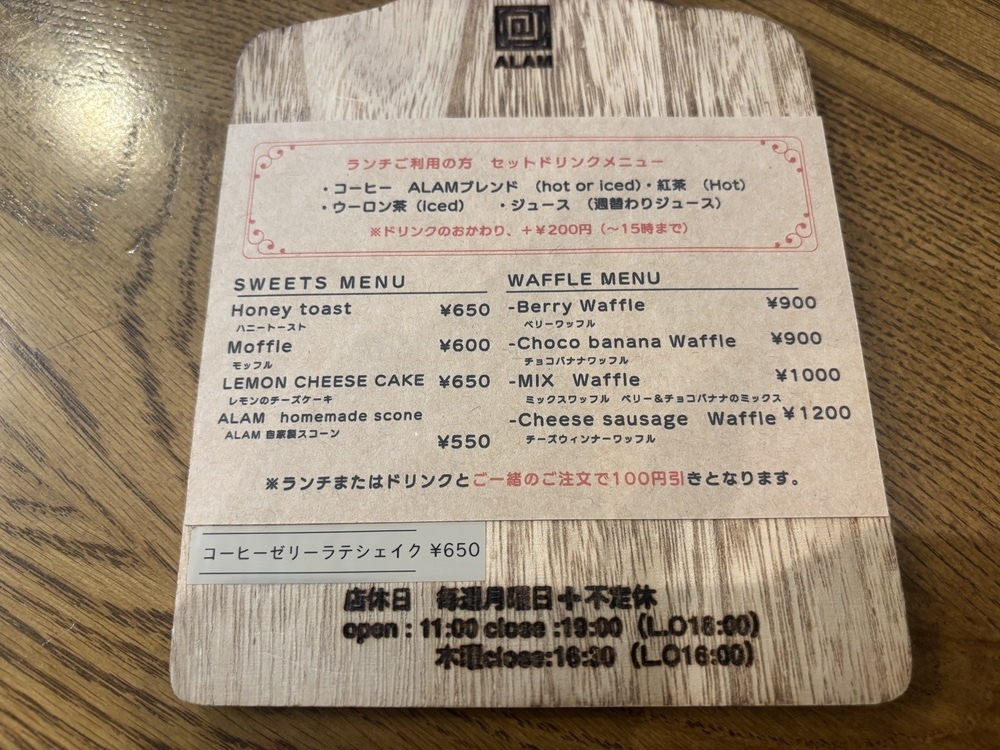 ALAM
ランチご利用の方　セットドリンクメニュー
・コーヒー　ALAMブレンド　(hot or iced)・紅茶　(Hot)
・ウーロン茶 (iced)　　・ジュース　(週替わりジュース)
※ドリンクのおかわり、＋¥200円 (～15時まで)
SWEETS MENU
Honey toast ¥650
ハニートースト
Moffle ¥600
モッフル
LEMON CHEESE CAKE ¥650
レモンのチーズケーキ
ALAM homemade scone
ALAM 自家製スコーン
¥550
WAFFLE MENU
-Berry Waffle ¥900
ベリーワッフル
-Choco banana Waffle ¥900
チョコバナナワッフル
-MIX Waffle ¥1000
ミックスワッフル　ベリー＆チョコバナナのミックス
-Cheese sausage Waffle ¥1200
チーズウィンナーワッフル
※ランチまたはドリンクとご一緒のご注文で100円引きとなります。
コーヒーゼリーラテシェイク ¥650
店休日　毎週月曜日＋不定休
open : 11:00 close :19:00 (L.O18:00)
木曜close:16:30 (L.O16:00)